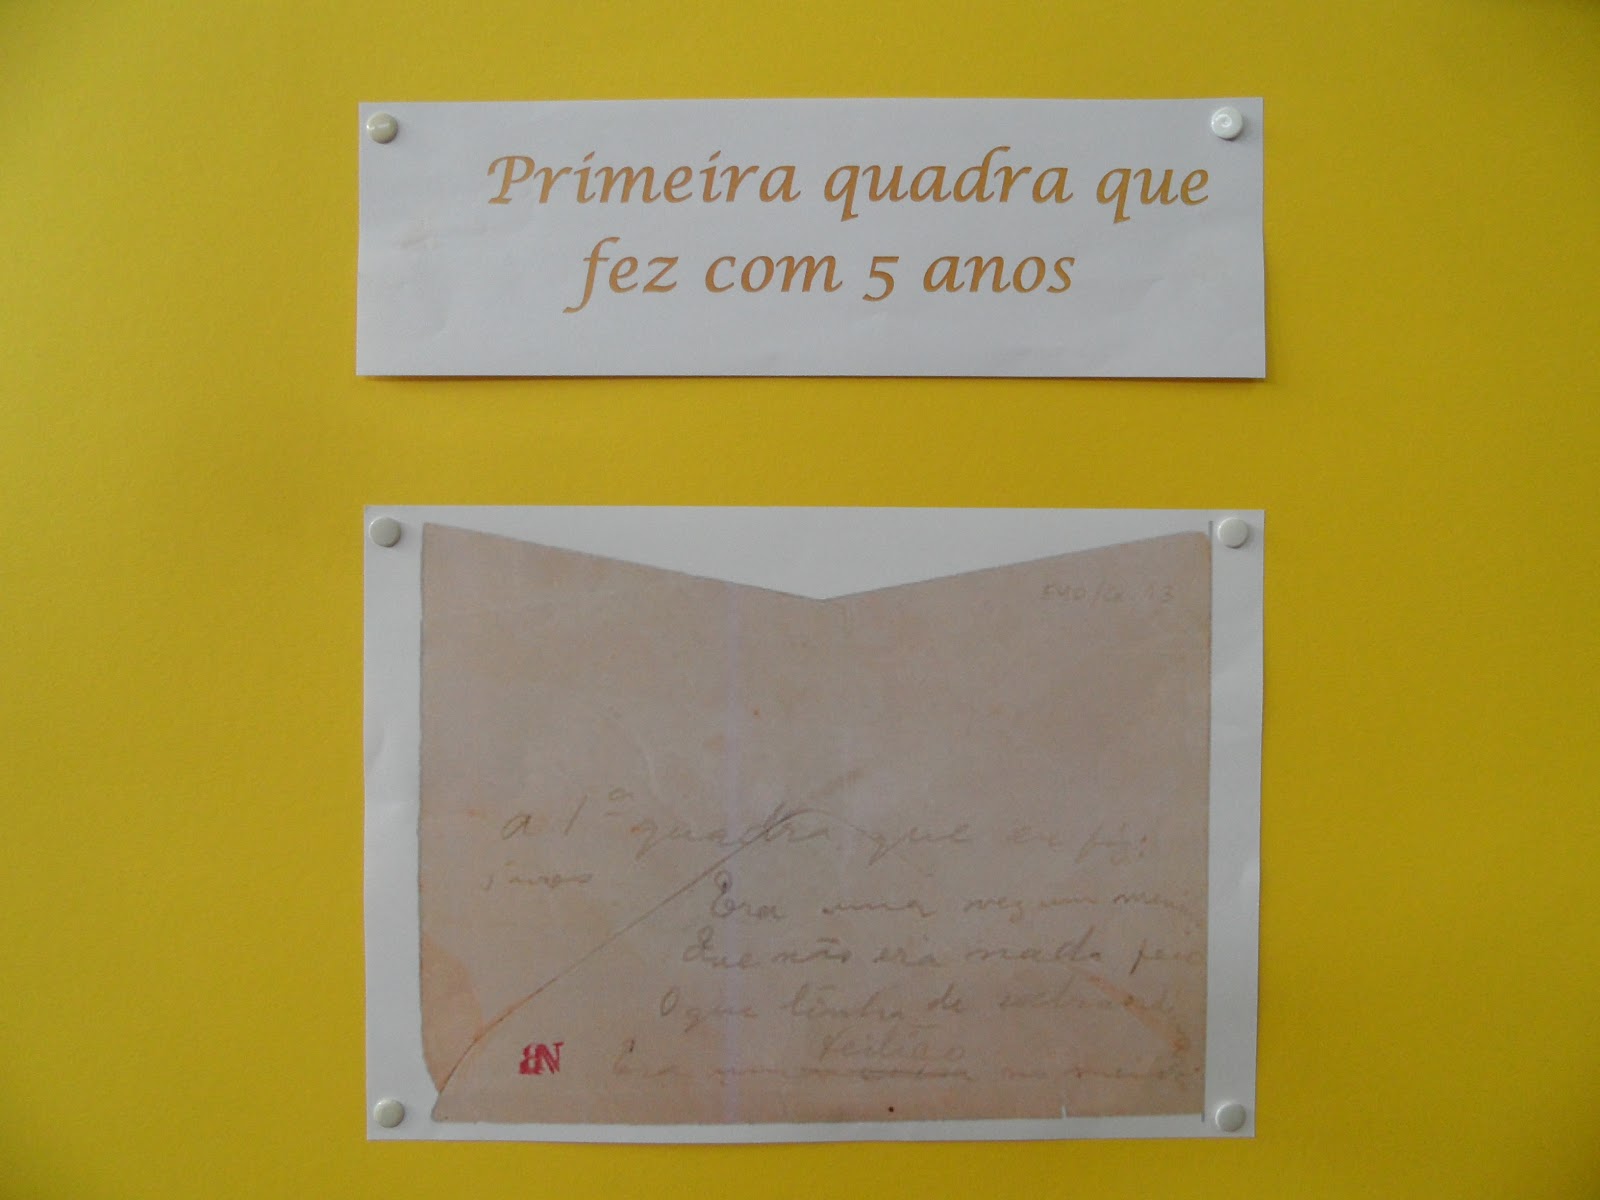 Primeira quadra que
fez com 5 anos
a 1ª quadra que eu fiz:
5 anos
Era uma vez um menino
Que não era nada feio
O que tinha de
Era no
BN